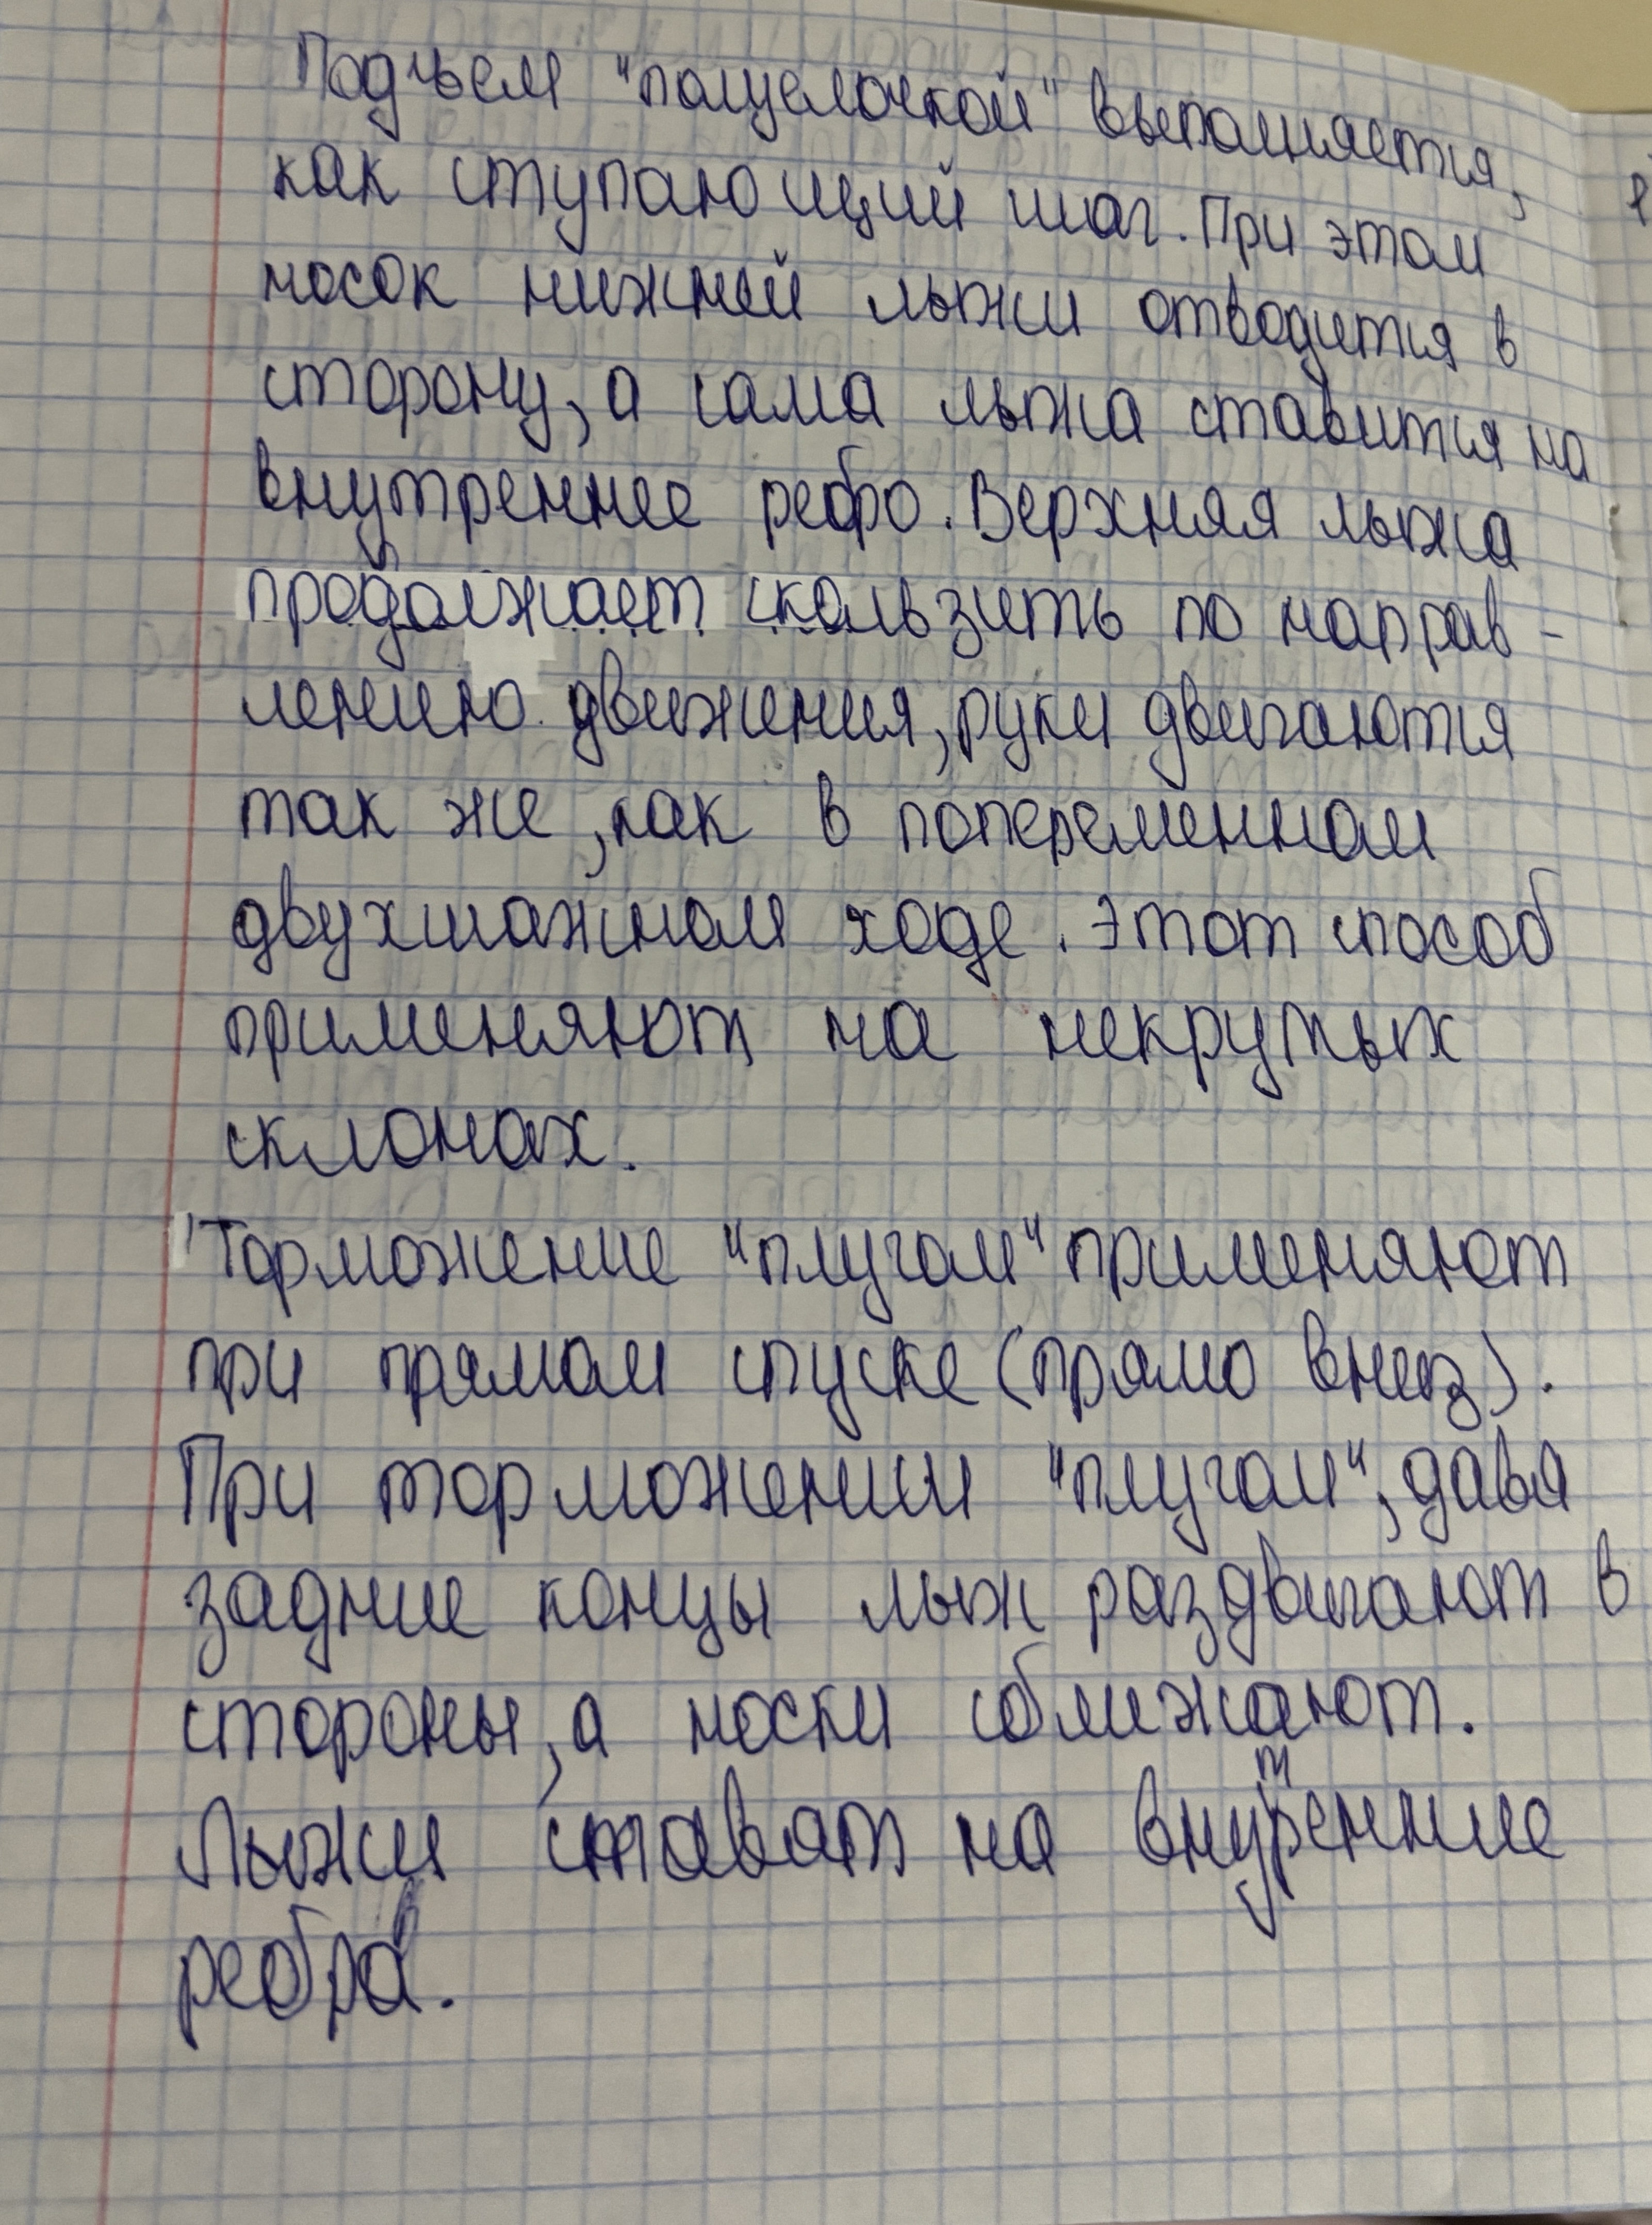 Подъем "полуелочкой" выполняется,
как ступающий шаг. При этом
носок нижней лыжи отводится в
сторону, а сама лыжа ставится на
внутреннее ребро. Верхняя лыжа
продолжает скользить по направ-
лению движения, руки двигаются
так же, как в попеременном
двухшажном ходе. Этот способ
применяют на некрутых
склонах.
Торможение "плугом" применяют
при прямом спуске (прямо вниз).
При торможении "плугом", давя
задние концы лыж раздвигают в
стороны, а носки сближают.
Лыжи ставят на внутренние
ребра.